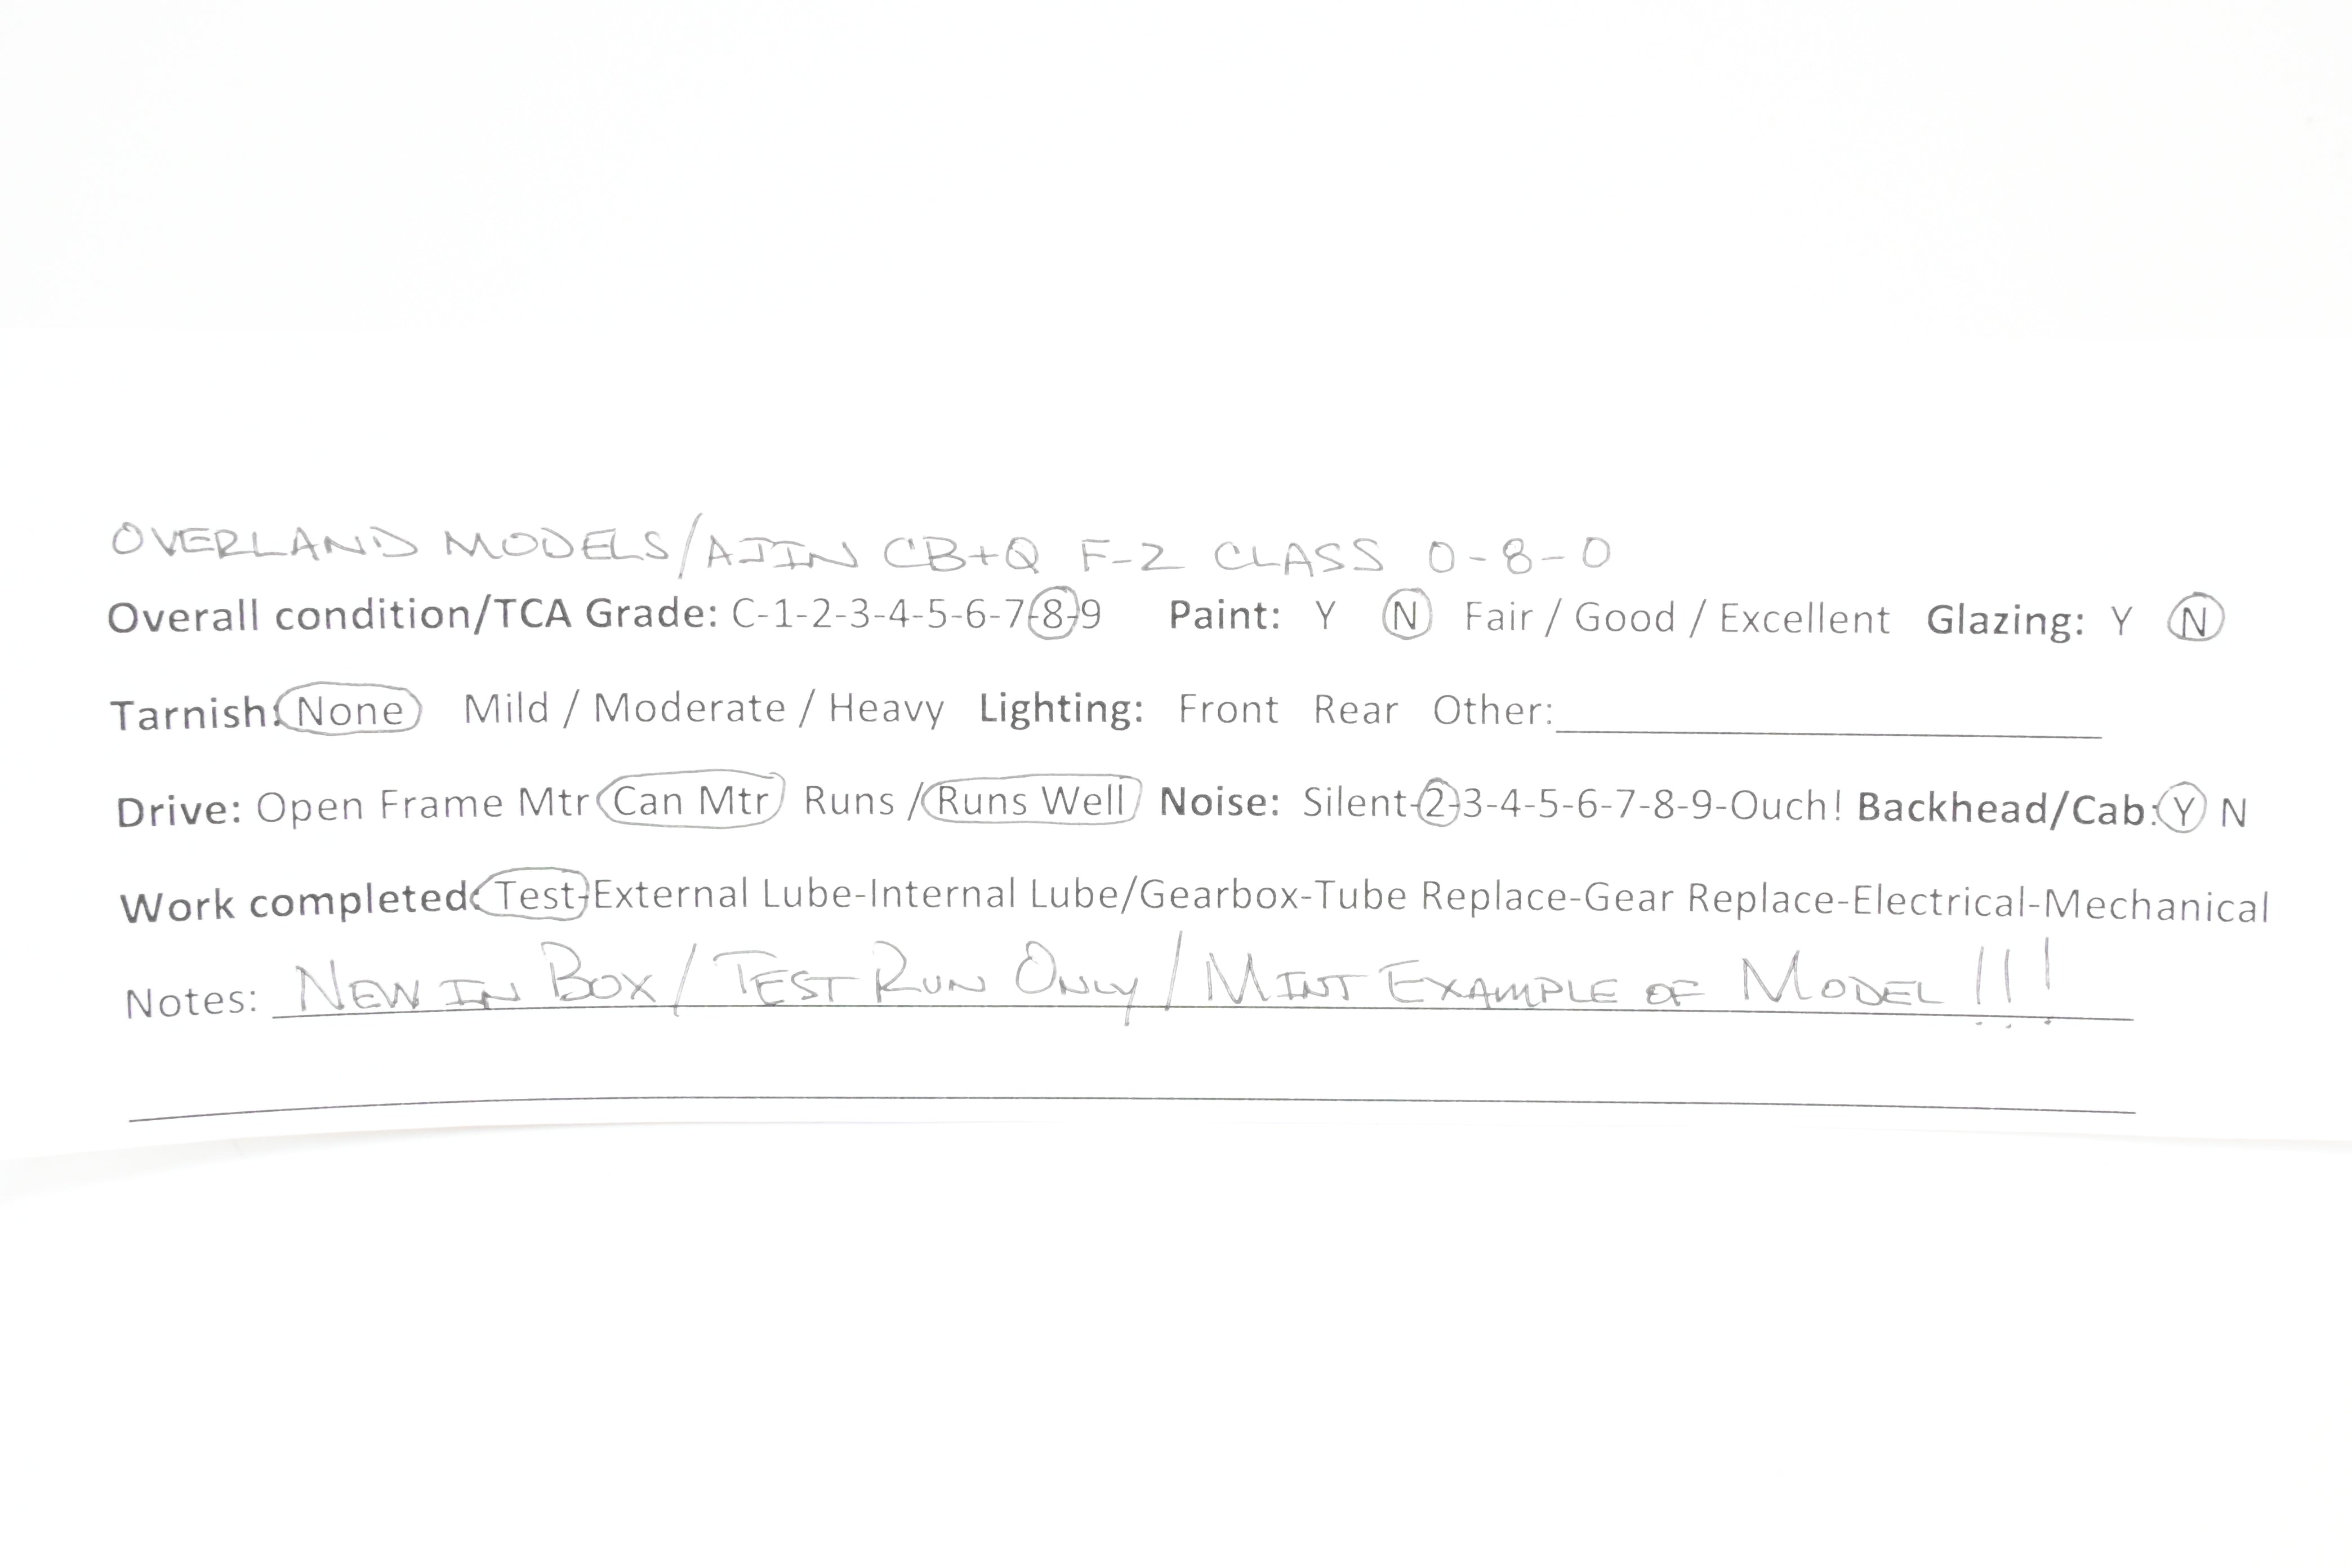 OVERLAND MODELS/AJIN CB+Q F-2 CLASS 0-8-0
Overall condition/TCA Grade: C-1-2-3-4-5-6-7-8-9 Paint: Y N Fair / Good / Excellent Glazing: Y N
Tarnish: None Mild / Moderate / Heavy Lighting: Front Rear Other:
Drive: Open Frame Mtr Can Mtr Runs / Runs Well Noise: Silent-2-3-4-5-6-7-8-9-Ouch! Backhead/Cab: Y N
Work completed: Test-External Lube-Internal Lube/Gearbox-Tube Replace-Gear Replace-Electrical-Mechanical
Notes: NEW IN BOX/TEST RUN ONLY/MINT EXAMPLE OF MODEL!!!